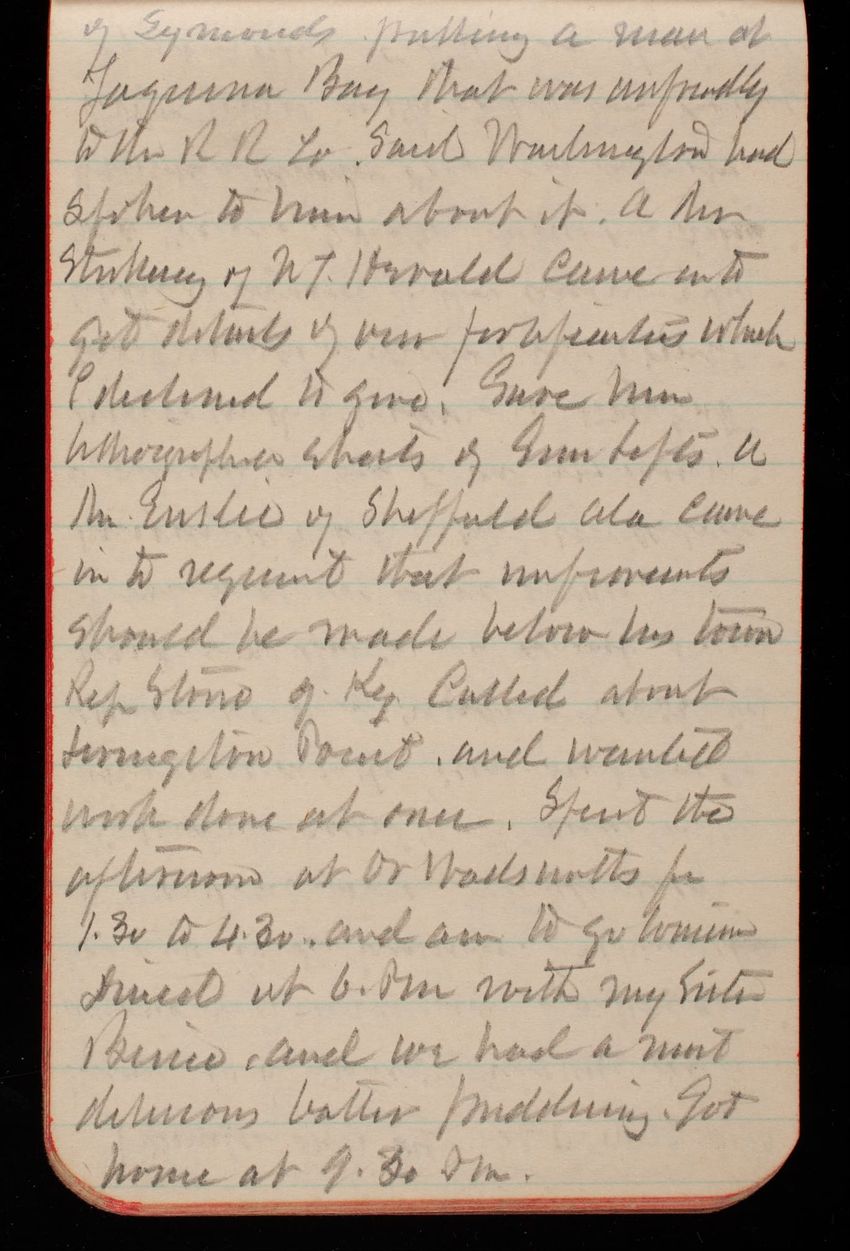 of Symonds putting a man at
Yaquina Bay that was unfriendly
to the R R Co. Said Washington had
spoken to him about it. A Mr
Stickney of N.Y. Herald came in to
get details of our fortifications which
I declined to give. Gave him
lithographic sheets of Gun Lifts. A
Mr. Enslie of Sheffield Ala came
in to request that improvements
should be made below his town
Rep Stone of Ky Called about
Livingston Point. and wanted
work done at once. Spent the
afternoon at Dr Wadsworths fr
1.30 to 4.30. and am to go
at 6. PM with my Sister
and we had a most
delicious batter pudding. Got
home at 9.30 PM.